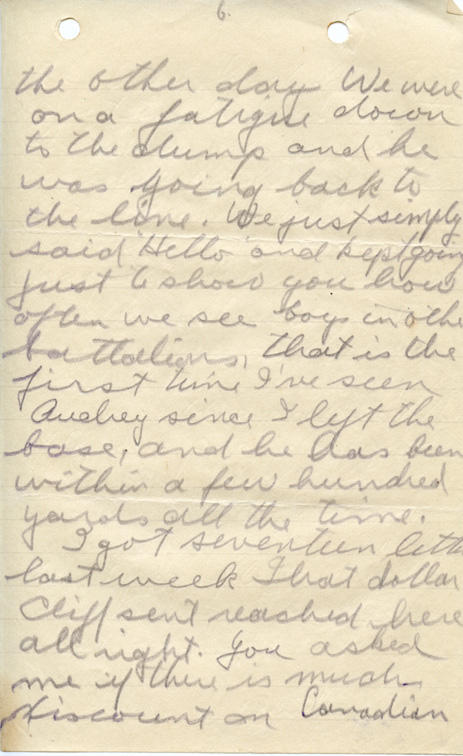 6.
the other day We were
on a fatigue down
to the dump and he
was going back to
the line. We just simply
said "Hello" and kept going
just to show you how
often we see boys in othe
battalions, that is the
first time I've seen
Audrey since I left the
base, and he has been
within a few hundred
yards all the time.
I got seventeen lette
last week That dollar
Cliff sent reached here
all right. You asked
me if there is much
discount on Canadian